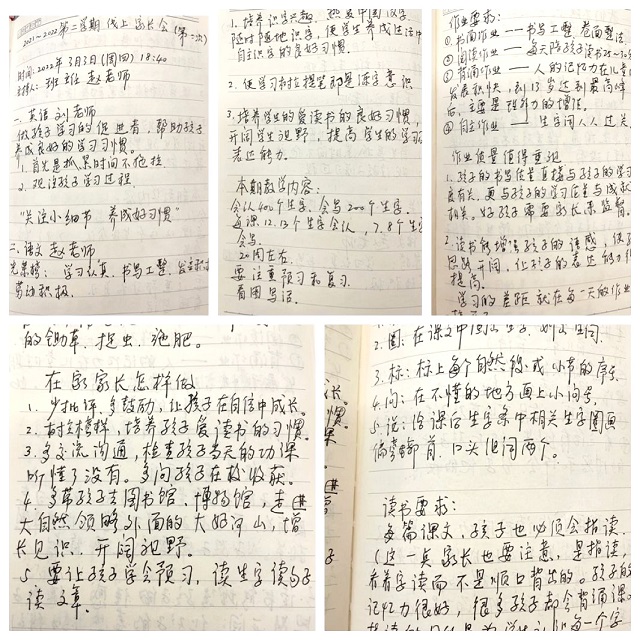 2021~2022第二学期 线上 家长会(第一次)
时间:2022年3月3日(周四) 18:40
主持人: 班主任 赵老师
一. 英语 刘老师
做孩子学习的促进者, 帮助孩子
养成良好的学习习惯。
1. 首先是抓紧时间不拖拉
2. 观注孩子学习过程
"关注小细节 养成好习惯"
二. 语文 赵老师
光荣榜: 学习认真, 书写工整,
劳动积极.
1. 培养识字兴趣, 热爱中国汉字.
随时随地识字, 使学生养成生活中
自主识字的良好习惯.
2. 使学习和拉提笔即是练字意识
3. 培养学生的爱读书的良好习惯,
开阔学生视野, 提高学生的学习
表达能力。
本期教学内容:
会认400个生字. 会写200个生字.
每课12.13个生字会认, 7.8个生
会写.
20周左右.
要注重预习和复习.
看图写话.
作业要求:
① 书面作业 —— 书写工整 卷面整洁
② 阅读作业 —— 每天陪孩子读书25~30
③ 背诵作业 —— 人的记忆力在儿童
发展积快, 到13岁达到最高峰
后, 主要是理解力的增强.
④ 自主作业 —— 生字词人人过关
作业质量值得重视
1. 孩子的书写质量直接与孩子的学习
良有关, 更与孩子的学习质量与成
相关. 好孩子需要家长来监督.
2. 读书能增强孩子的语感, 使
思路开阔, 让孩子的表达能力
提高.
学习的差距就在每一天的作业
的锄草、捉虫、施肥。
在家家长怎样做
1. 少批评, 多鼓励, 让孩子在自信中成长。
2. 树立榜样, 培养孩子爱读书的习惯.
3. 多交流沟通, 检查孩子当天的功课
听懂了没有。多问孩子在校收获。
4. 多带孩子去图书馆、博物馆, 走进
大自然领略外面的大好河山, 增
长见识. 开阔视野。
5. 要让孩子学会预习, 读生字读句子
读文章.
2. 圈: 在课文中圈出生字,
3. 标: 标上每个自然段或小节的序号.
4. 问: 在不懂的地方画上小问号.
5. 说: 给课后生字条中相关生字圈画
偏旁部首. 口头组词两个.
读书要求:
多篇课文, 孩子也必须会指读.
(这一点家长也要注意, 是指读,
看着字读而不是顺口背出的。孩子的
记忆力很好, 很多孩子都会背诵课文